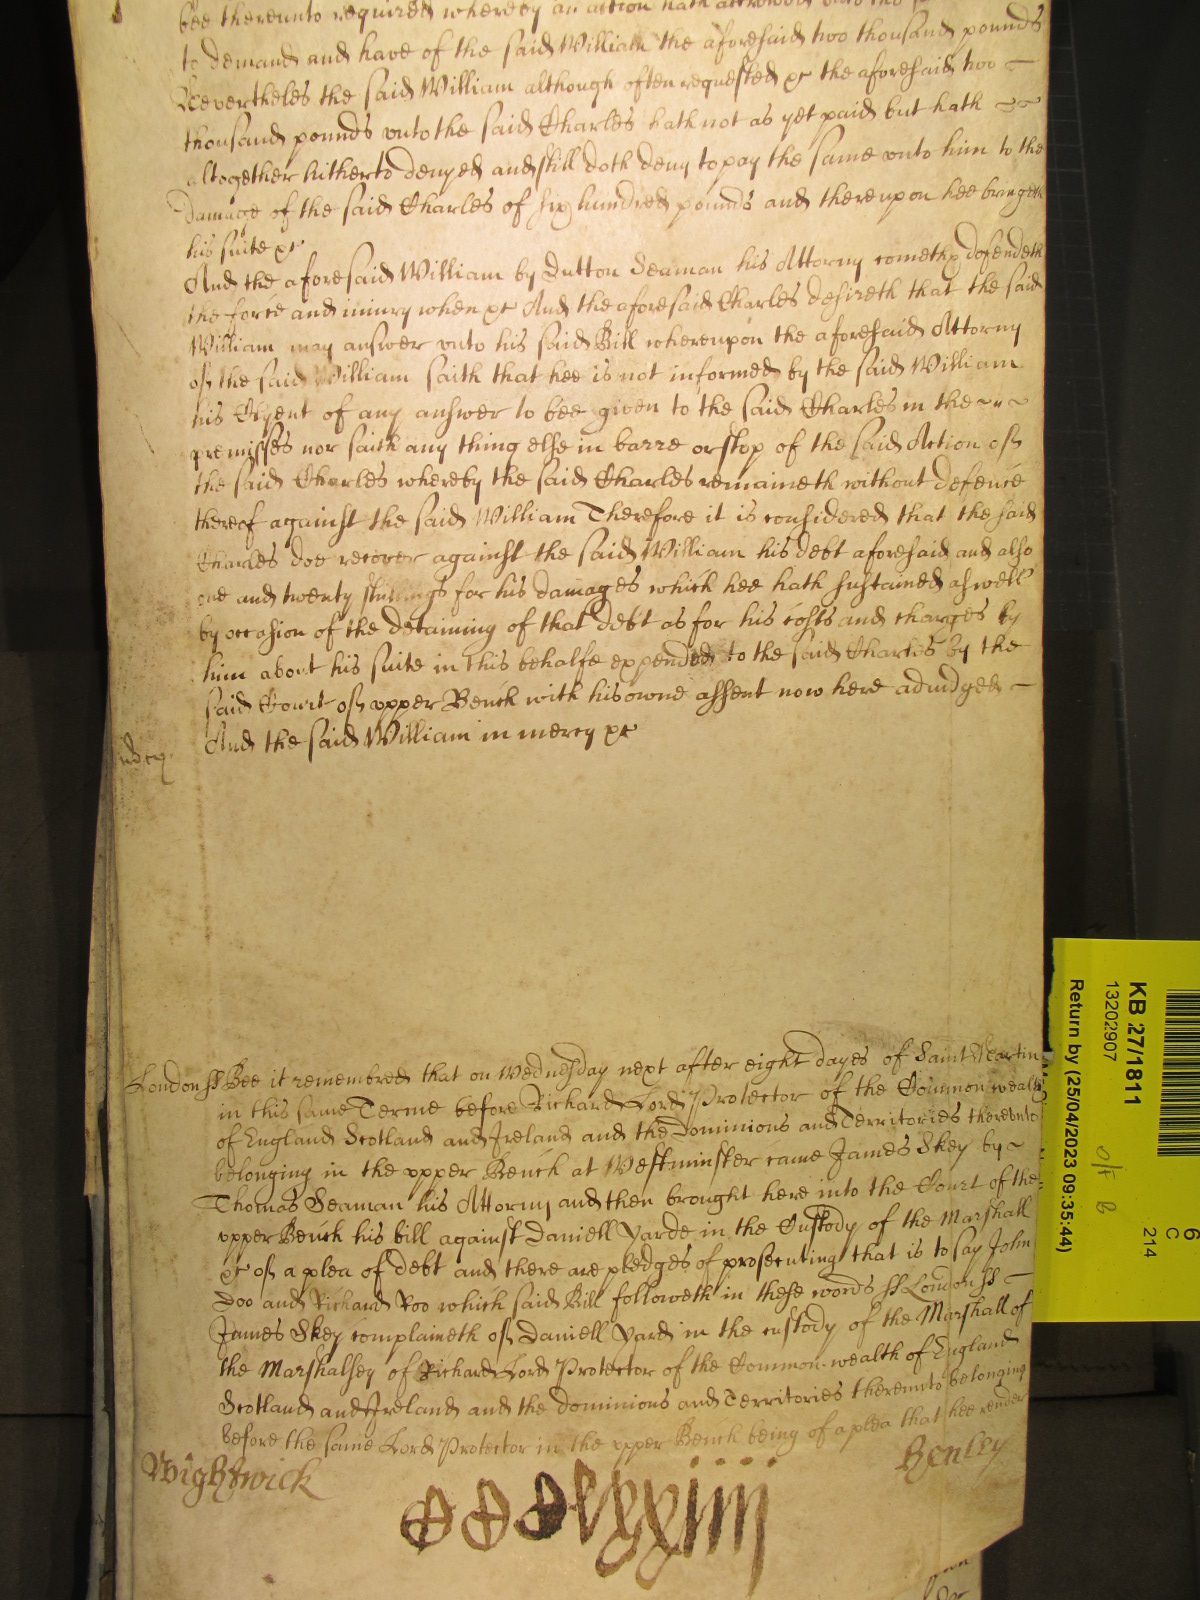 bee thereunto required whereby an action hath accrewed unto the
to demand and have of the said William the aforesaid two thousand pounds
Nevertheles the said William although often requested &c the aforesaid two —
thousand pounds vnto the said Charles hath not as yet paid but hath ~~
altogether hitherto denyed and still doth deny to pay the same vnto him to the
damage of the said Charles of six hundred pounds and thereupon hee bringeth
his suite &c
And the aforesaid William by Dutton Seaman his Attorny cometh & defendeth
the force and iniury when &c And the aforesaid Charles desireth that the said
William may answer vnto his said Bill whereupon the aforesaid Attorny
of the said William saith that hee is not informed by the said William
his Clyent of any answer to bee given to the said Charles in the ~"~
premisses nor saith any thing else in barre or stop of the said Action of
the said Charles whereby the said Charles remaineth without defence
thereof against the said William Therefore it is considered that the said
Charles doe recover against the said William his debt aforesaid and also
one and twenty shillings for his damages which hee hath sustained aswell
by occasion of the detaining of that debt as for his costs and charges by
him about his suite in this behalfe expended to the said Charles by the
said Court of vpper Bench with his owne assent now here adiudged —
And the said William in mercy &c
London ss Bee it remembred that on Wednesday next after eight dayes of Saint Martin
in this same Terme before Richard Lord Protector of the Common wealth
of England Scotland and Ireland and the Dominions and Territories thereunto
belonging in the vpper Bench at Westminster came James Skey by ~
Thomas Seaman his Attorny and then brought here into the Court of the
vpper Bench his bill against Daniell Yarde in the Custody of the Marshall
&c of a plea of debt and there are pledges of prosecuting that is to say John
Doo and Richard Roo which said Bill followeth in these words ss London ss —
James Skey complaineth of Daniell Yard in the custody of the Marshall of
the Marshalsey of Richard Lord Protector of the Common-wealth of England
Scotland and Ireland and the dominions and Territories thereunto belonging
before the same Lord Protector in the vpper Bench being of a plea that hee render
Wightwick
Henley
KB 27/1811
13202907
Return by (25/04/2023 09:35:44)
6
C
214